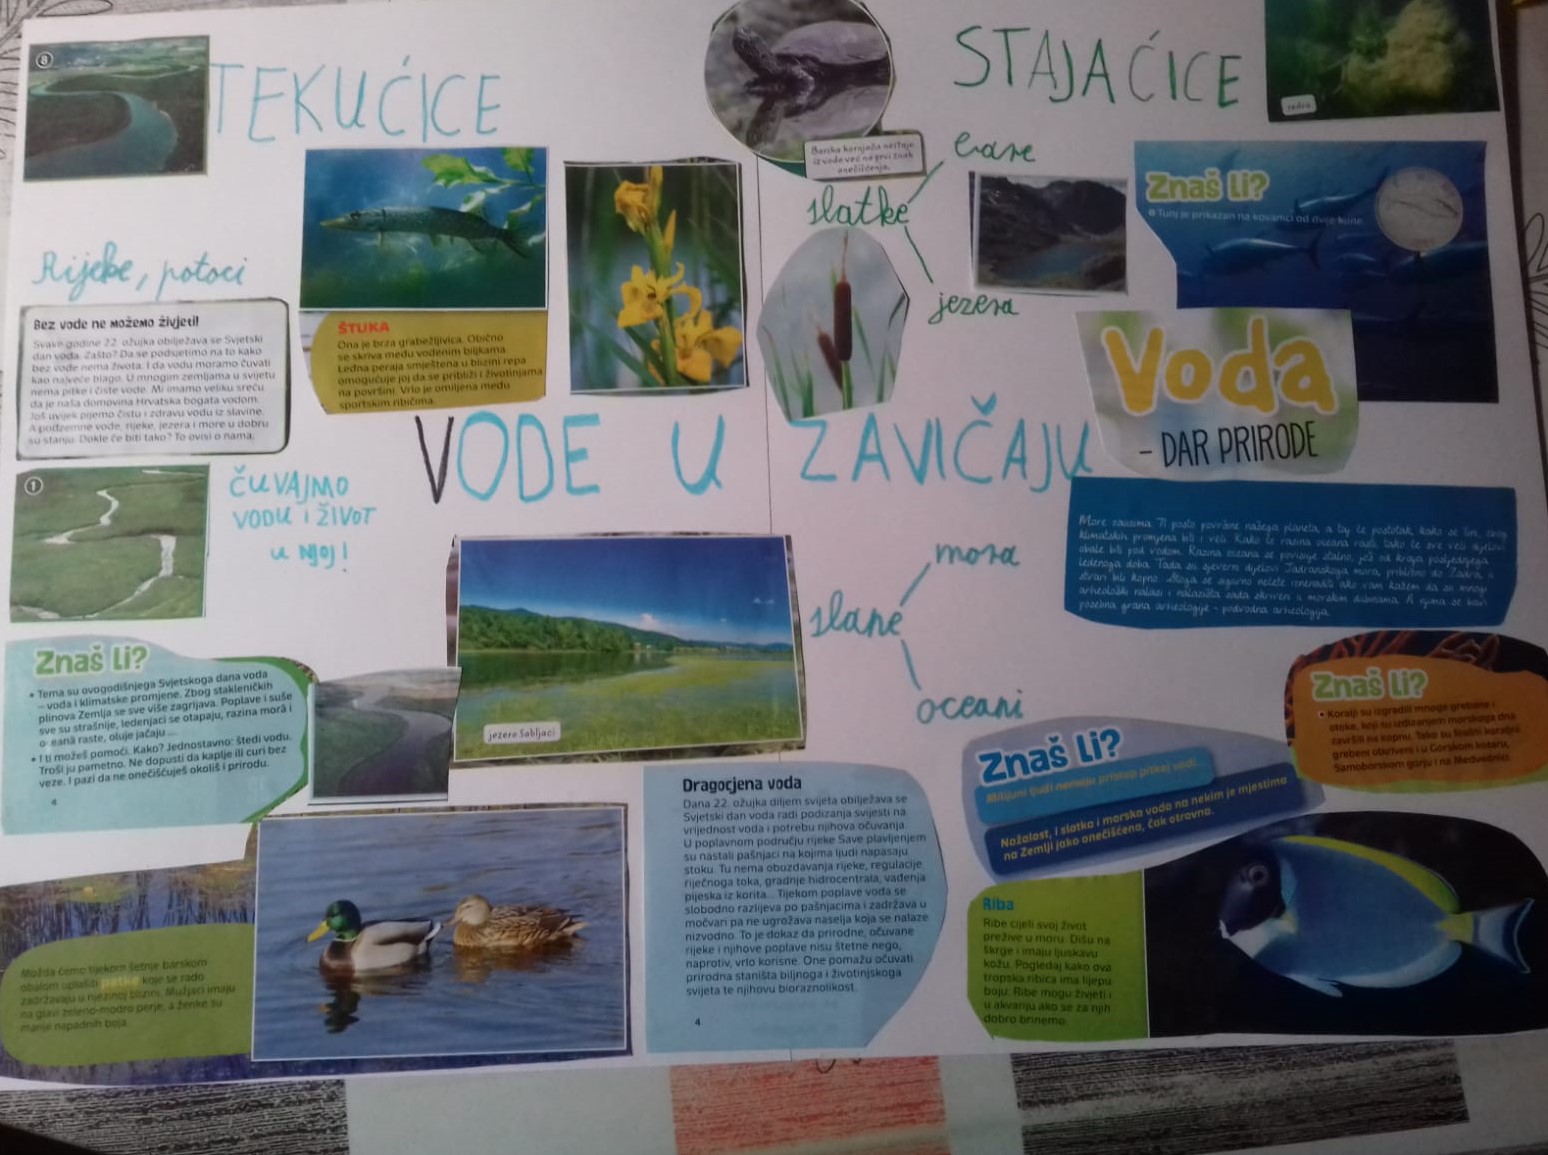 8
TEKUĆICE
STAJAĆICE
sedra
Barska kornjača nestaje
iz vode već na prvi znak
onečišćenja.
bare
slatke
jezera
Znaš li?
Tunj je prikazan na kovanici od dvije kune.
Rijeke, potoci
Bez vode ne možemo živjeti!
Svake godine 22. ožujka obilježava se Svjetski
dan voda. Zašto? Da se podsjetimo na to kako
bez vode nema života. I da vodu moramo čuvati
kao najveće blago. U mnogim zemljama u svijetu
nema pitke i čiste vode. Mi imamo veliku sreću
da je naša domovina Hrvatska bogata vodom.
Još uvijek pijemo čistu i zdravu vodu iz slavine.
A podzemne vode, rijeke, jezera i more u dobru
su stanju. Dokle će biti tako? To ovisi o nama.
ŠTUKA
Ona je brza grabežljivica. Obično
se skriva među vodenim biljkama
Leđna peraja smještena u blizini repa
omogućuje joj da se približi i životinjama
na površini. Vrlo je omiljena među
sportskim ribičima.
Voda
- DAR PRIRODE
VODE U ZAVIČAJU
1
ČUVAJMO
VODU I ŽIVOT
U NJOJ!
More zauzima 71 posto površine našega planeta, a taj će postotak, kako se čini, zbog
klimatskih promjena biti i veći. Kako će razina oceana rasti, tako će sve veći dijelovi
obale biti pod vodom. Razina oceana se povisuje stalno, još od kraja posljednjega
ledenoga doba. Tada su sjeverni dijelovi Jadranskoga mora, približno do Zadra, u
stvari bili kopno. Stoga se sigurno nećete iznenaditi ako vam kažem da su mnogi
arheološki nalazi i nalazišta sada skriveni u morskim dubinama. A njima se bavi
posebna grana arheologije - podvodna arheologija.
mora
slane
oceani
Znaš li?
• Tema su ovogodišnjega Svjetskoga dana voda
– voda i klimatske promjene. Zbog stakleničkih
plinova Zemlja se sve više zagrijava. Poplave i suše
sve su strašnije, ledenjaci se otapaju, razina mora i
oceana raste, oluje jačaju ...
• I ti možeš pomoći. Kako? Jednostavno: štedi vodu.
Troši ju pametno. Ne dopusti da kaplje ili curi bez
veze. I pazi da ne onečišćuješ okoliš i prirodu.
4
jezero Sabljaci
Znaš li?
• Koralji su izgradili mnoge grebene i
otoke, koji su izdizanjem morskoga dna
završili na kopnu. Tako su fosilni koraljni
grebeni otkriveni i u Gorskom kotaru,
Samoborskom gorju i na Medvednici.
Znaš li?
Milijuni ljudi nemaju pristup pitkoj vodi.
Nažalost, i slatka i morska voda na nekim je mjestima
na Zemlji jako onečišćena, čak otrovna.
Dragocjena voda
Dana 22. ožujka diljem svijeta obilježava se
Svjetski dan voda radi podizanja svijesti na
vrijednost voda i potrebu njihova očuvanja.
U poplavnom području rijeke Save plavljenjem
su nastali pašnjaci na kojima ljudi napasaju
stoku. Tu nema obuzdavanja rijeke, regulacije
riječnoga toka, gradnje hidrocentrala, vađenja
pijeska iz korita... Tijekom poplave voda se
slobodno razlijeva po pašnjacima i zadržava u
močvari pa ne ugrožava naselja koja se nalaze
nizvodno. To je dokaz da prirodne, očuvane
rijeke i njihove poplave nisu štetne nego,
naprotiv, vrlo korisne. One pomažu očuvati
prirodna staništa biljnoga i životinjskoga
svijeta te njihovu bioraznolikost.
4
Riba
Ribe cijeli svoj život
prežive u moru. Dišu na
škrge i imaju ljuskavu
kožu. Pogledaj kako ova
tropska ribica ima lijepu
boju. Ribe mogu živjeti i
u akvariju ako se za njih
dobro brinemo.
Možda ćemo tijekom šetnje barskom
obalom uplašiti patke koje se rado
zadržavaju u njezinoj blizini. Mužjaci imaju
na glavi zeleno-modro perje, a ženke su
manje napadnih boja.